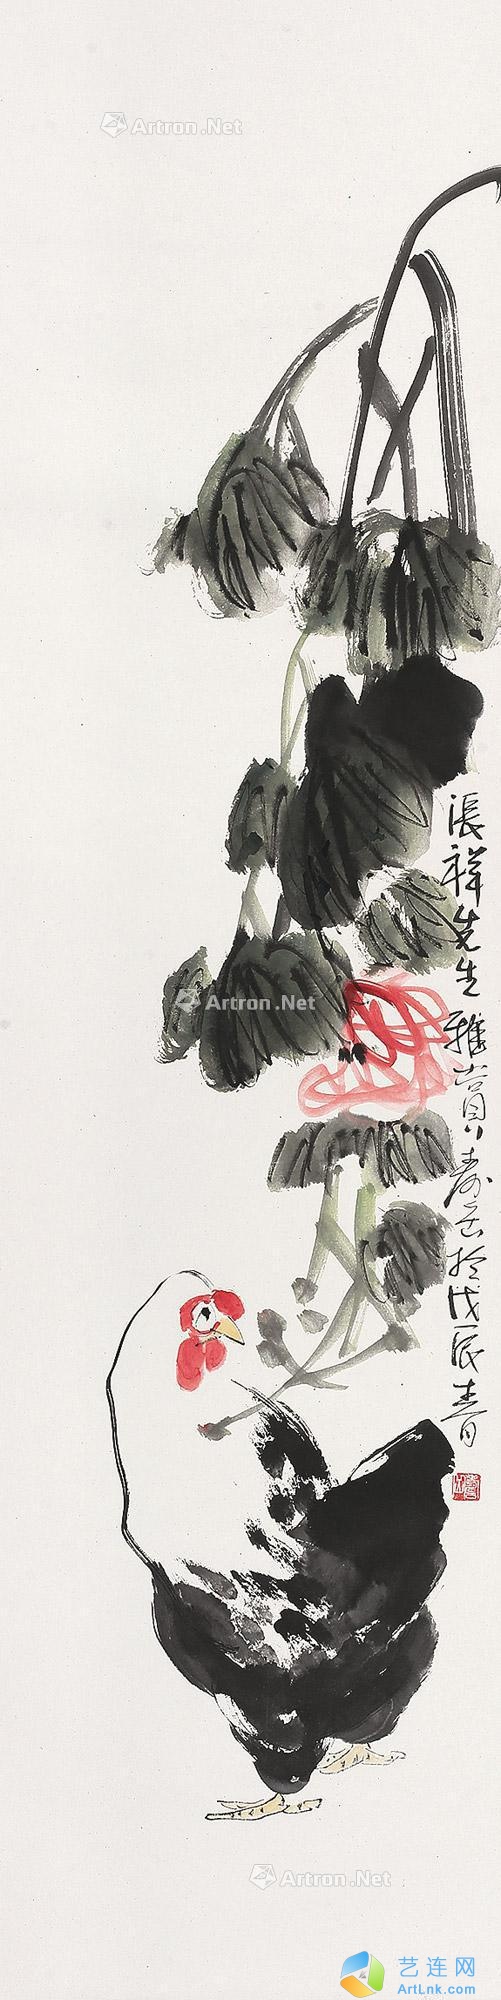 Artron.Net
張祥先生雅賞壽岳於戊辰春月
Artron.Net
Artron.Net
艺连网
ArtLnk.com